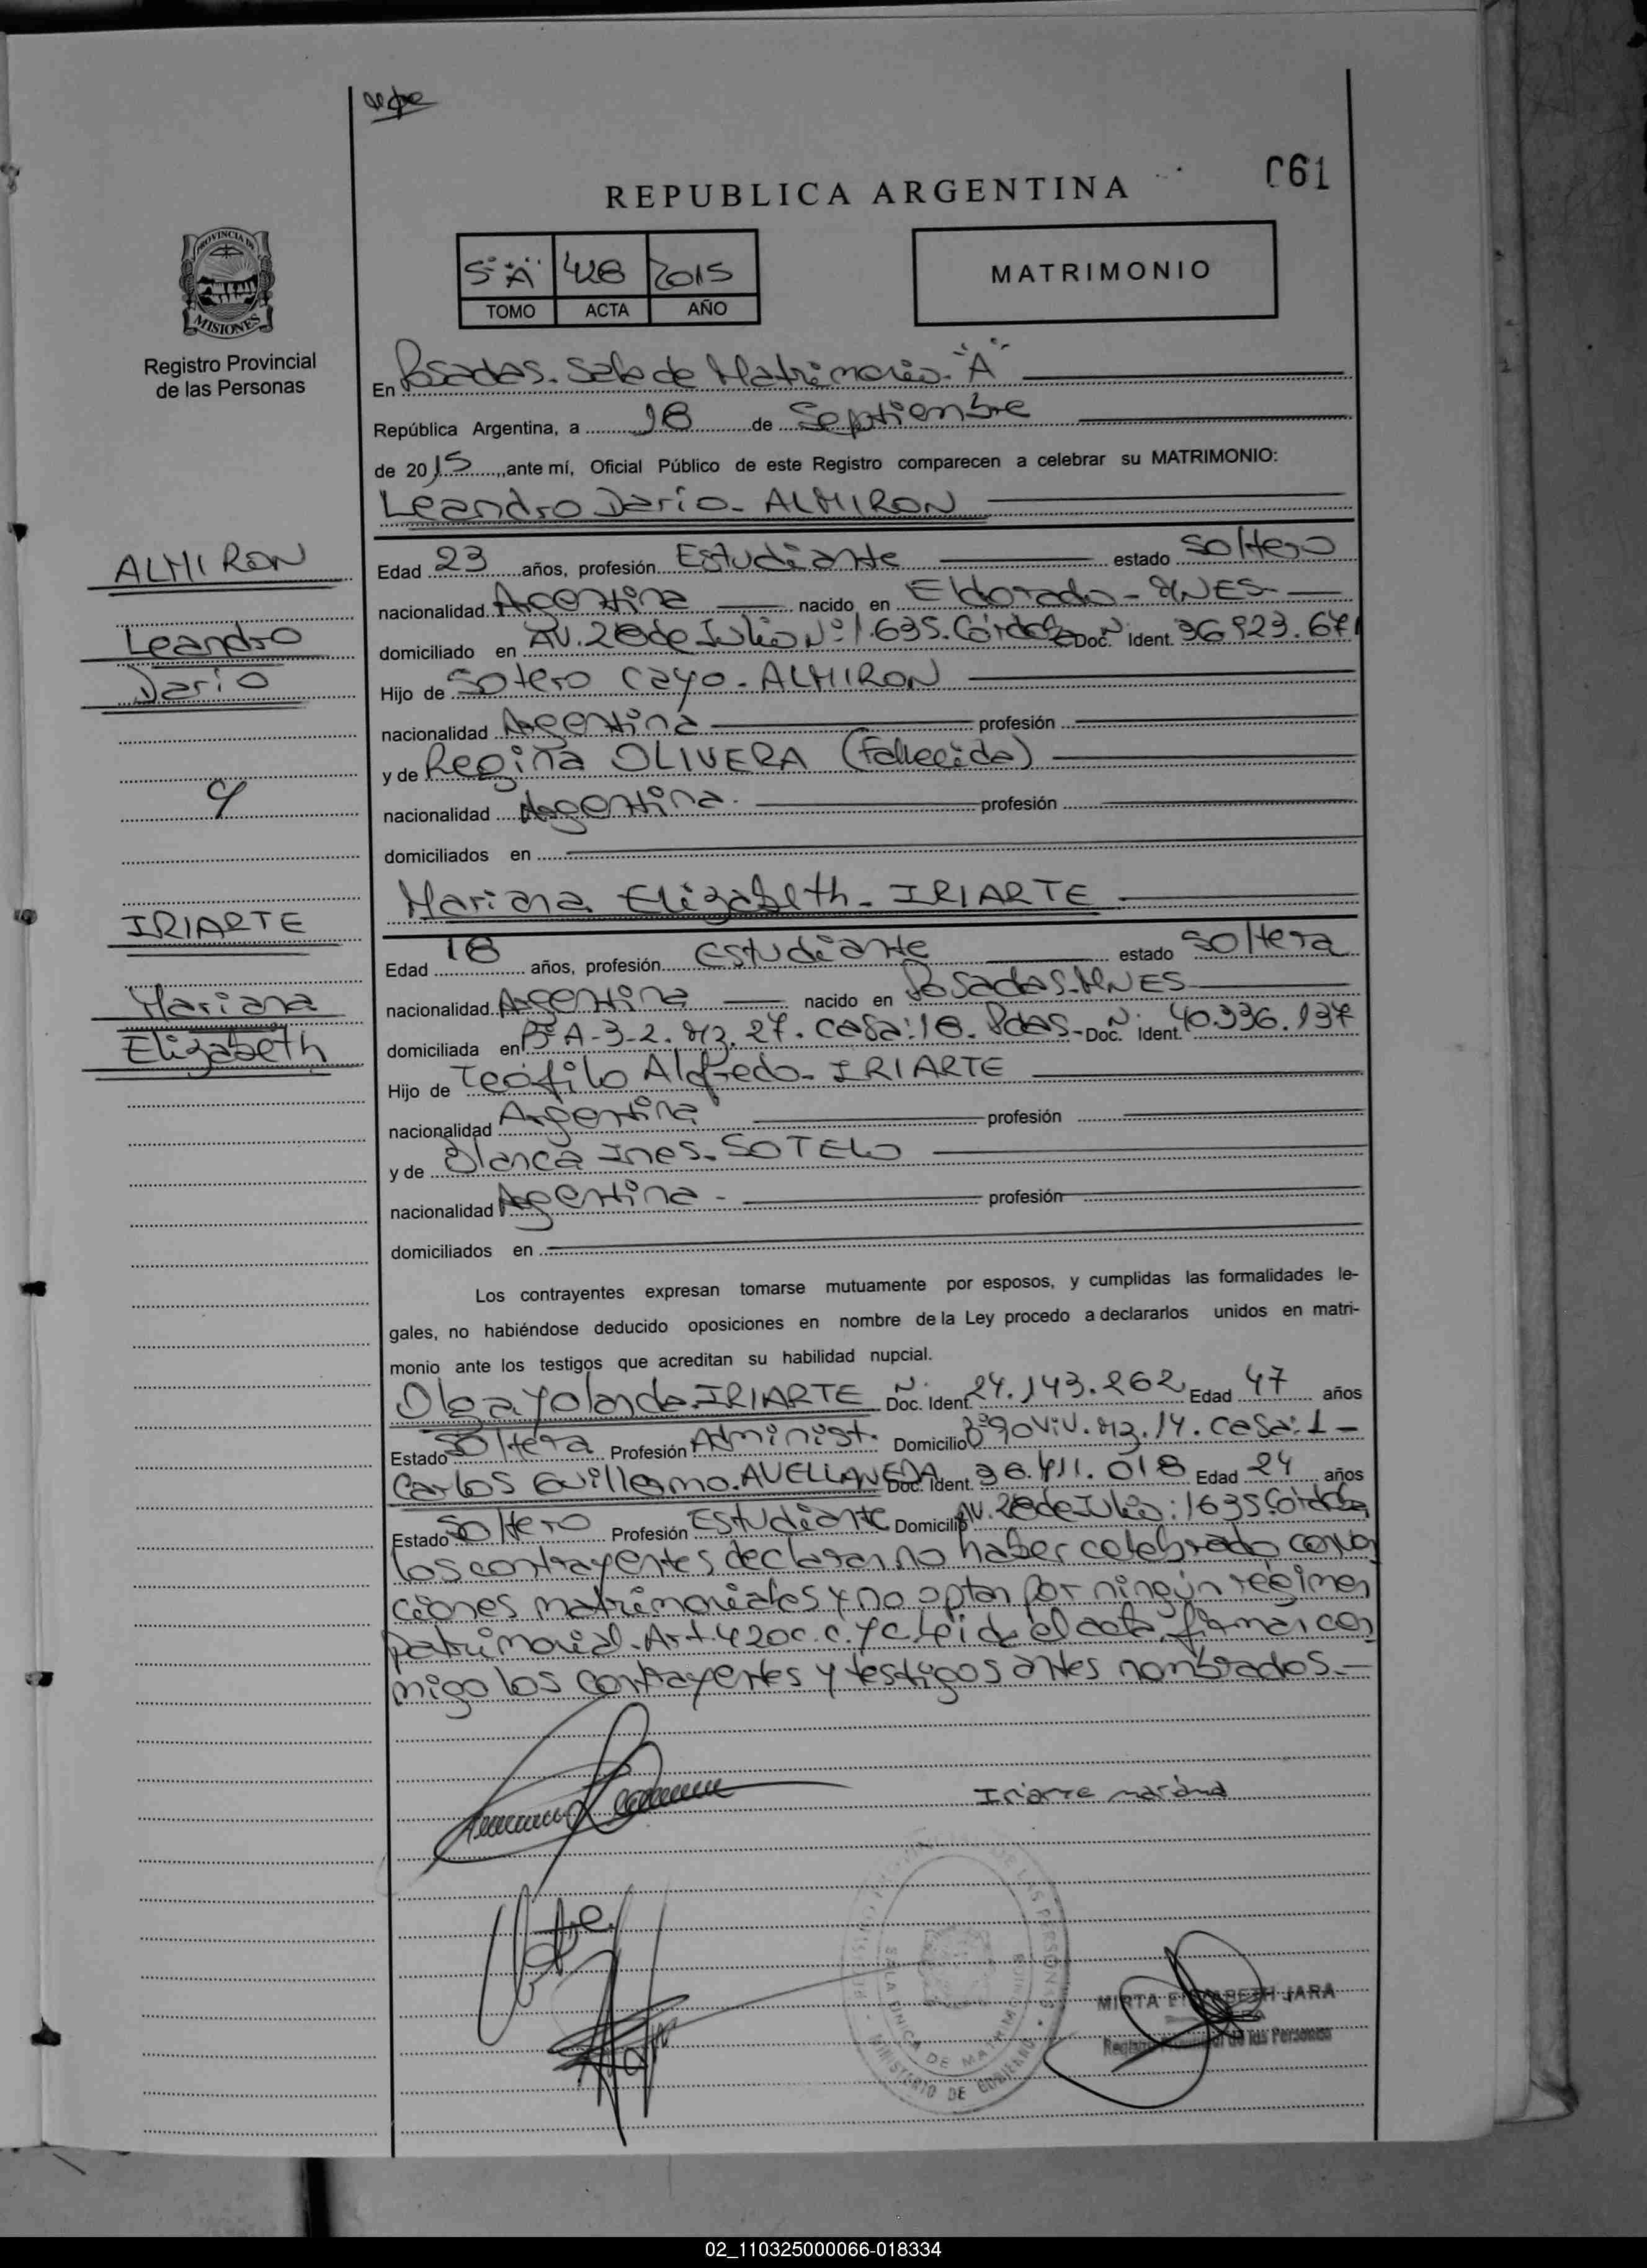 061
REPUBLICA ARGENTINA
PROVINCIA DE
MISIONES
Registro Provincial
de las Personas
5° "A" 428 2015
TOMO ACTA AÑO
MATRIMONIO
En Posadas. Sala de Matrimonio. "A"
República Argentina, a 18 de Septiembre
de 2015, ante mí, Oficial Público de este Registro comparecen a celebrar su MATRIMONIO:
Leandro Dario - ALMIRON
ALMIRON
Leandro
Dario
Edad 23 años, profesión Estudiante estado soltero
nacionalidad Argentina nacido en Eldorado - MNES-
domiciliado en AV. 28 de Julio N° 1.635. Córdoba Doc. N° Ident. 36.923.671
Hijo de Sotero Cayo - ALMIRON
nacionalidad Argentina profesión
y de Regina OLIVERA (Fallecida)
nacionalidad Argentina. profesión
domiciliados en
Mariana Elizabeth - IRIARTE
y
IRIARTE
Mariana
Elizabeth
Edad 18 años, profesión Estudiante estado soltera
nacionalidad Argentina nacido en Posadas-MNES
domiciliada en B° A-3-2. Mz. 27. Casa: 18. Pdas- Doc. N° Ident. 40.336.137
Hijo de Teófilo Alfredo - IRIARTE
nacionalidad Argentina profesión
y de Blanca Ines - SOTELO
nacionalidad Argentina - profesión
domiciliados en
Los contrayentes expresan tomarse mutuamente por esposos, y cumplidas las formalidades le-
gales, no habiéndose deducido oposiciones en nombre de la Ley procedo a declararlos unidos en matri-
monio ante los testigos que acreditan su habilidad nupcial.
Olga Yolanda. IRIARTE Doc. N° Ident. 24.143.262 Edad 47 años
Estado Soltera Profesión Administ. Domicilio B° 90 Viv. Mz. 14. Casa: 1 -
Carlos Guillermo. AVELLANEDA Doc. Ident. 36.411.018 Edad 24 años
Estado Soltero Profesión Estudiante Domicilio AV. 28 de Julio: 1635. Córdoba
los contrayentes declaran no haber celebrado conven
ciones matrimoniales y no optan por ningún regimen
patrimonial. Art. 420 c.c. y c. Leida el acta, firman con
migo los contrayentes y testigos antes nombrados.-
Iriarte mariana
SALA UNICA DE MATRIMONIO
MINISTERIO DE GOBIERNO
MIRTA ELIZABETH JARA
Registro Provincial de las Personas
02_110325000066-018334